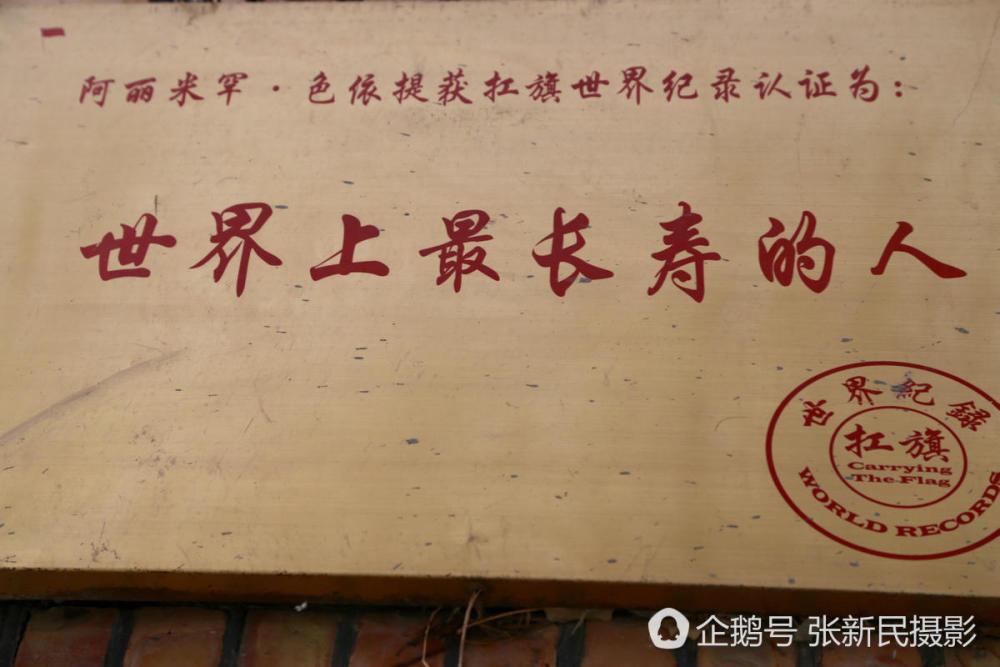 阿丽米罕·色依提获扛旗世界纪录认证为：
世界上最长寿的人
世界紀錄
扛旗
Carrying
The Flag
WORLD RECORDS
企鹅号 张新民摄影